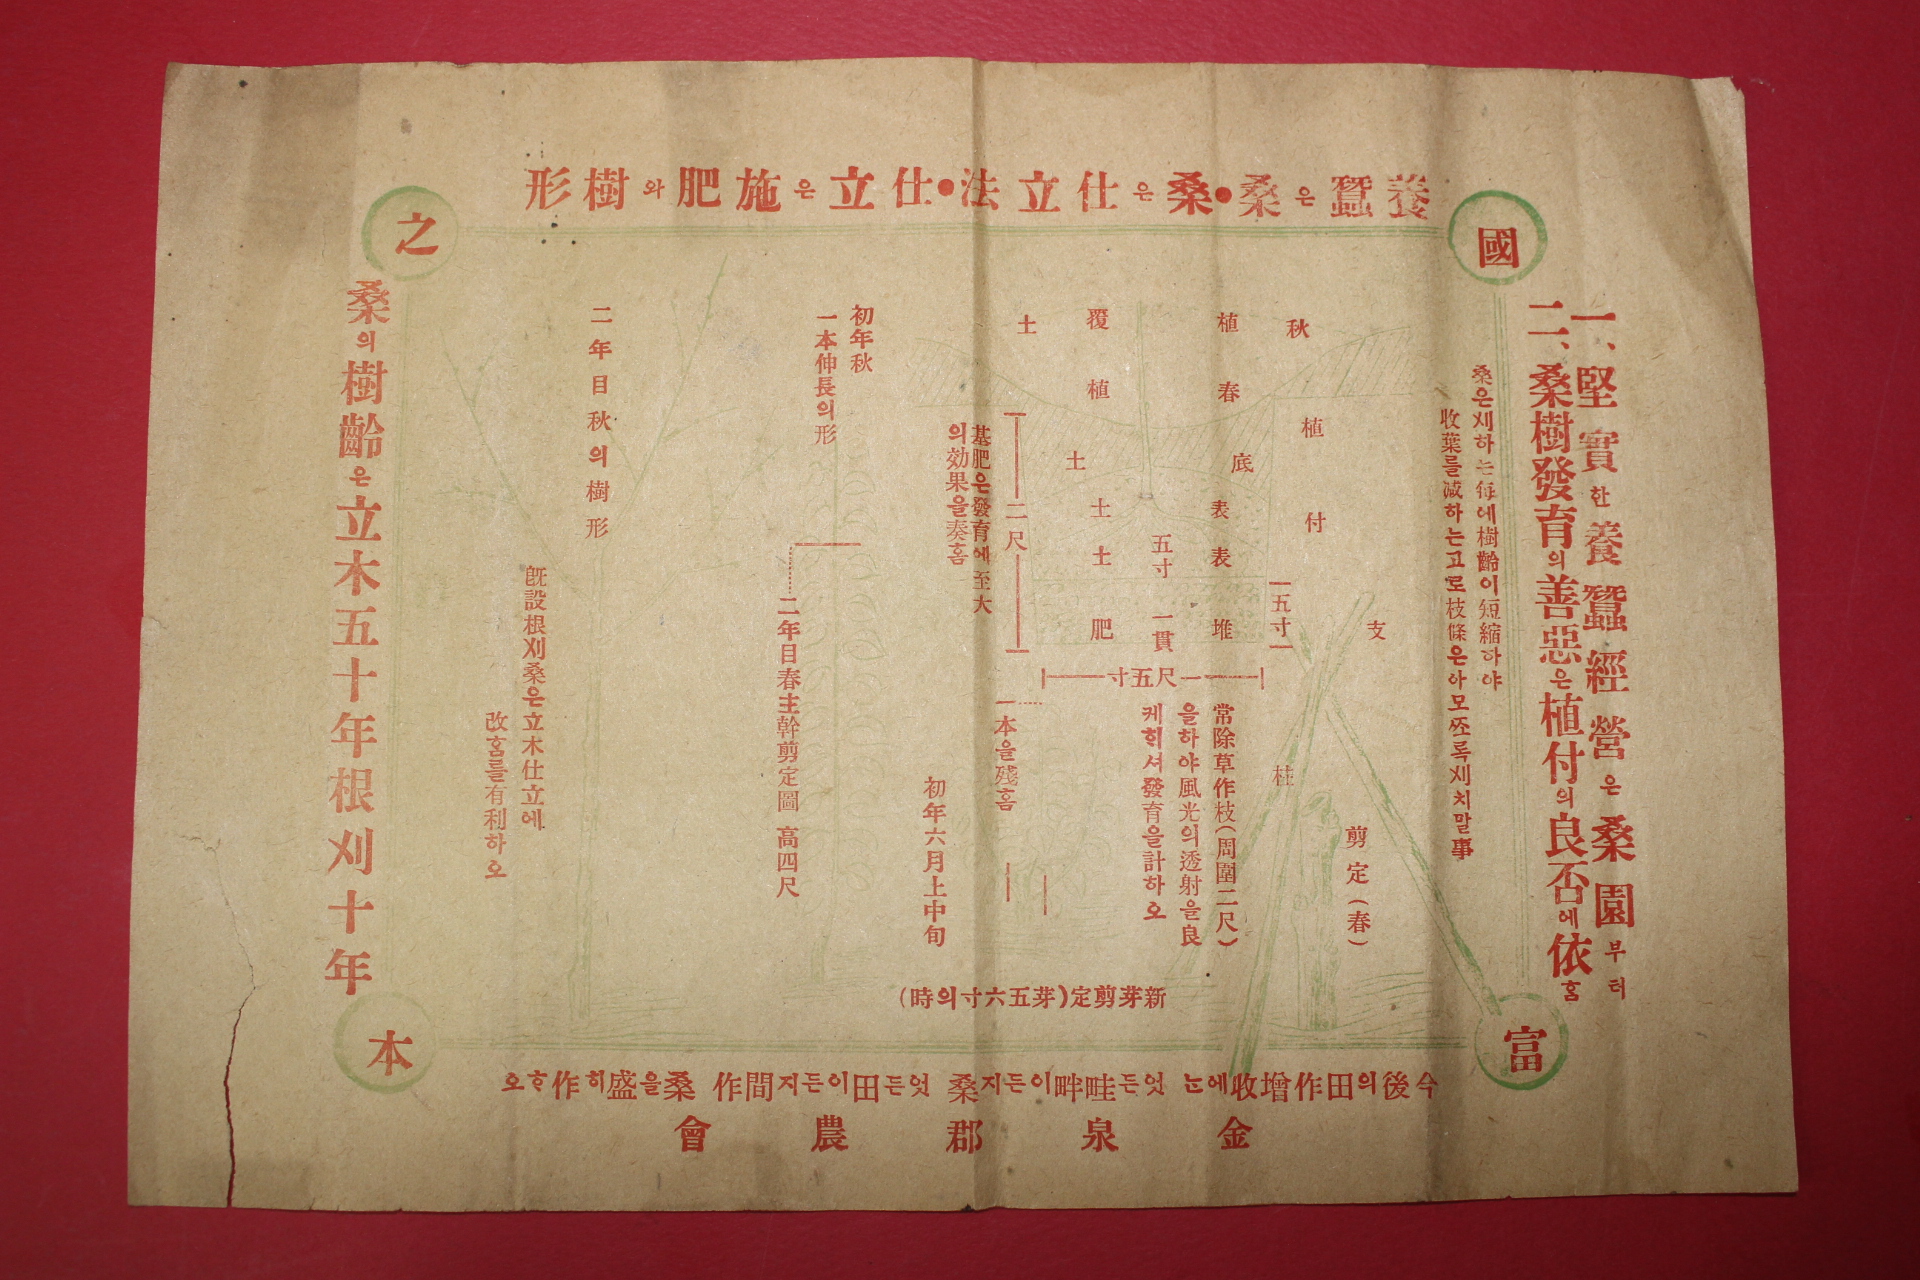 養蠶은桑●桑은仕立法●仕立은施肥와樹形
國
富
之
本
一、堅實한養蠶經營은桑園부터
二、桑樹發育의善惡은植付의良否에依홈
桑은刈하는每에樹齡이短縮하야
收葉를減하는고로枝條은아모쪼록刈치말事
秋植付
支柱
剪定(春)
植春
底
表表堆
五寸
五寸
一貫
覆植
土
土
土土肥
二尺
一尺五寸
基肥은發育에至大
의効果을奏홈
常除草作枝(周圍二尺)
을하야風光의透射을良
케히셔發育을計하오
一本을殘홈
初年六月上中旬
新芽剪定(芽五六寸의時)
初年秋
一本伸長의形
二年目春主幹剪定圖 高四尺
二年目秋의樹形
旣設根刈桑은立木仕立에
改홈를有利하오
桑의樹齡은立木五十年根刈十年
今後의田作增收에는 엇든畦畔이든지桑 엇든田이든지間作 桑을盛히作호오
金泉郡農會